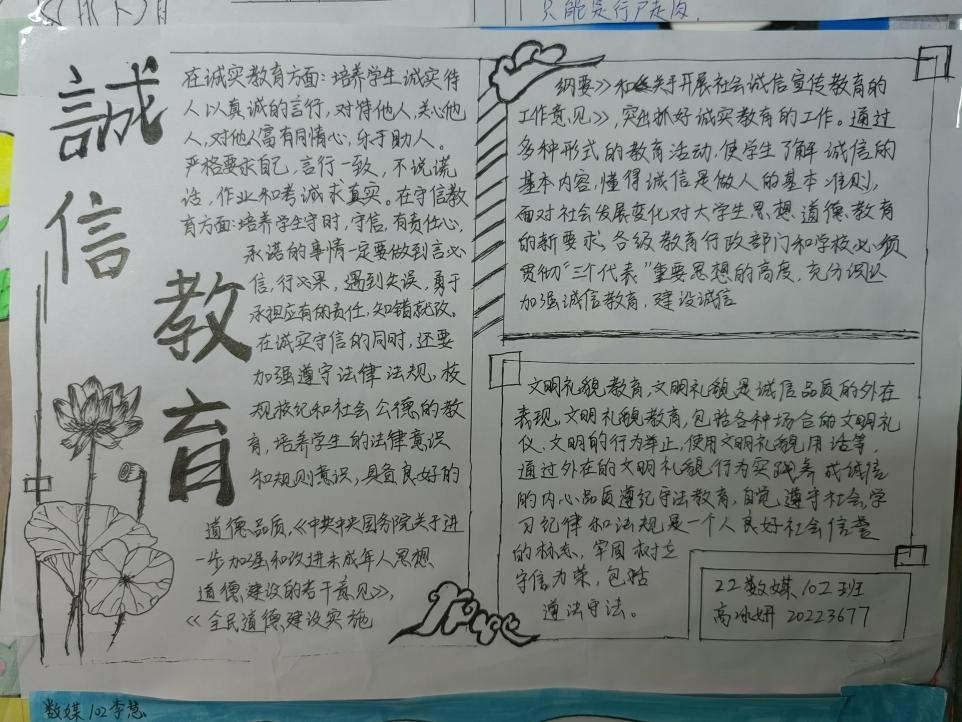 只能是行尸走肉.
誠
信
教
育
在诚实教育方面:培养学生诚实待
人以真诚的言行,对待他人,关心他
人,对他人富有同情心,乐于助人。
严格要求自己,言行一致,不说谎
话,作业和考诚求真实。在守信教
育方面:培养学生守时,守信,有责任心,
承诺的事情一定要做到言必
信,行必果,遇到失误,勇于
承担应有的责任,知错就改。
在诚实守信的同时,还要
加强遵守法律法规,校
规校纪和社会公德的教
育,培养学生的法律意识
和规则意识,具负良好的
道德品质,《中共中央国务院关于进
一步加强和改进未成年人思想
道德建设的若干意见》,
《全民道德建设实施
纲要》和《关于开展社会诚信宣传教育的
工作意见》,突出抓好诚实教育的工作。通过
多种形式的教育活动,使学生了解诚信的
基本内容,懂得诚信是做人的基本准则,
面对社会发展变化对大学生思想道德教育
的新要求,各级教育行政部门和学校必须
贯彻“三个代表”重要思想的高度,充分认从
加强诚信教育,建设诚信
文明礼貌教育,文明礼貌是诚信品质的外在
表现。文明礼貌教育,包括各种场合的文明礼
仪、文明的行为举止,使用文明礼貌用语等,
通过外在的文明礼貌行为实践养成诚信
的内心品质遵纪守法教育,自觉遵守社会,学
习纪律和法规是一个人良好社会信誉
的标志,牢固树立
守信为荣,包括
遵法守法。
22数媒102班
高冰妍 20223677
数媒102李慧